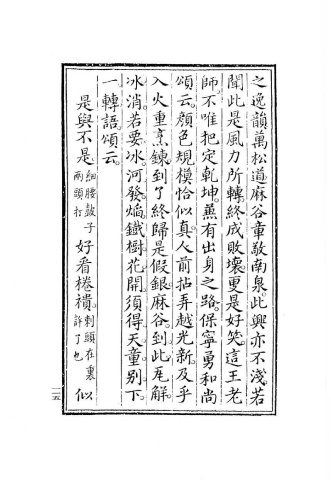 之逸韻萬松道麻谷重敬南泉此興亦不淺若
聞此是風力所轉終成敗壞更是好笑這王老
師不唯把定乾坤兼有出身之路保寧勇和尚
頌云顏色規模恰似真人前拈弄越光新及乎
入火重烹鍊到了終歸是假銀麻谷到此瓦解
冰消若要冰河發焰鐵樹花開須得天童別下
一轉語頌云
是與不是細腰鼓子兩頭打好看棬䙡刺頭在裏許了也似
一五